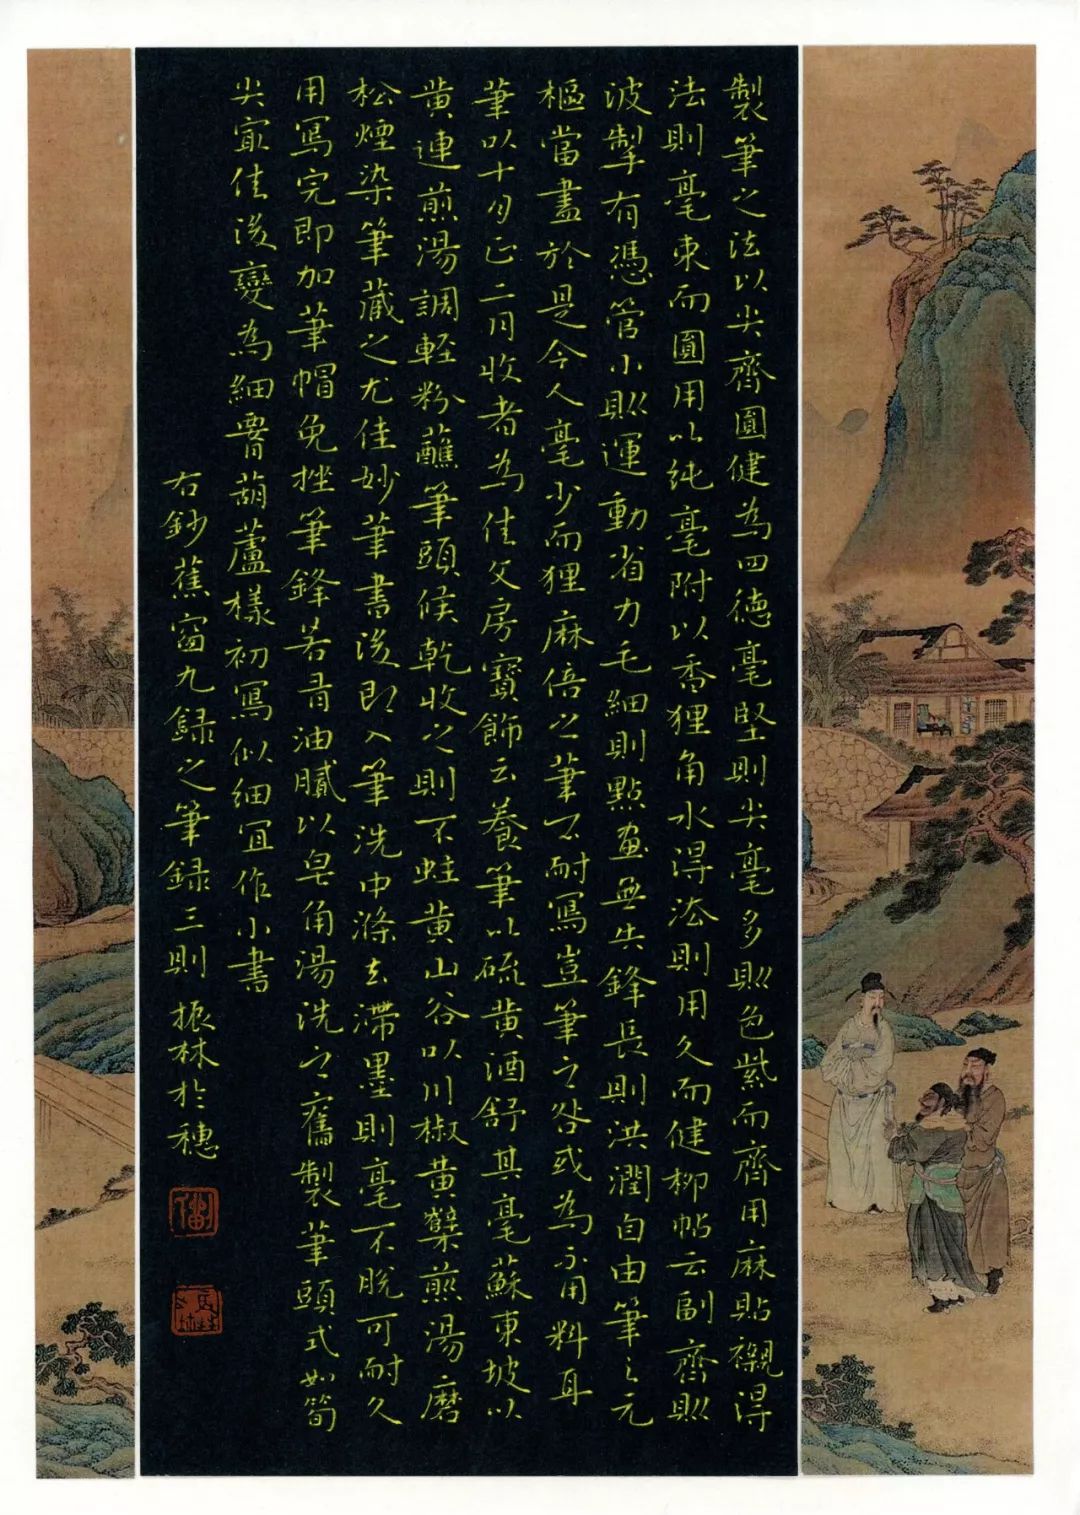 製筆之法以尖齊圓健為四德毫堅則尖毫多則色紫而齊用麻貼襯得
法則毫束而圓用以純毫附以香狸角水得法則用久而健柳帖云副齊則
波掣有憑管小則運動省力毛細則點畫無失鋒長則洪潤自由筆之元
樞當盡於是今人毫少而狸麻倍之筆不耐寫豈筆之咎或為不用料耳
筆以十月正二月收者為佳文房寶飾云養筆以硫黄酒舒其毫蘇東坡以
黄連煎湯調輕粉蘸筆頭候乾收之則不蛀黄山谷以川椒黄蘗煎湯磨
松煙染筆藏之尤佳妙筆書後即入筆洗中滌去滯墨則毫不脫可耐久
用寫完即加筆帽免挫筆鋒若有油膩以皂角湯洗之舊製筆頭式如筍
尖寂佳後變為細腰葫蘆樣初寫似細宜作小書
右鈔蕉窗九録之筆録三則 振林於穗